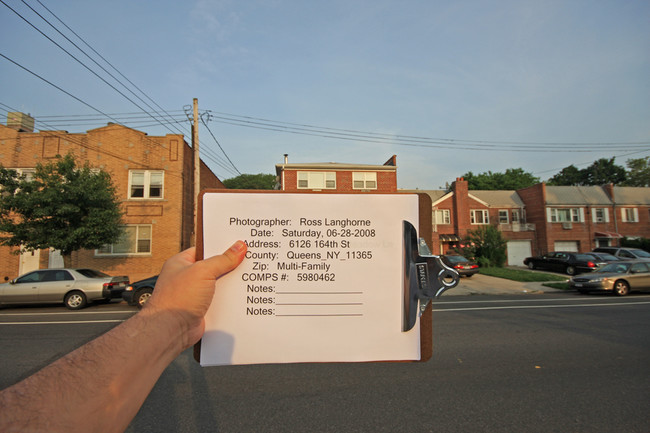 Photographer: Ross Langhorne
Date: Saturday, 06-28-2008
Address: 6126 164th St
County: Queens_NY_11365
Zip: Multi-Family
COMPS #: 5980462
Notes:
Notes:
Notes: